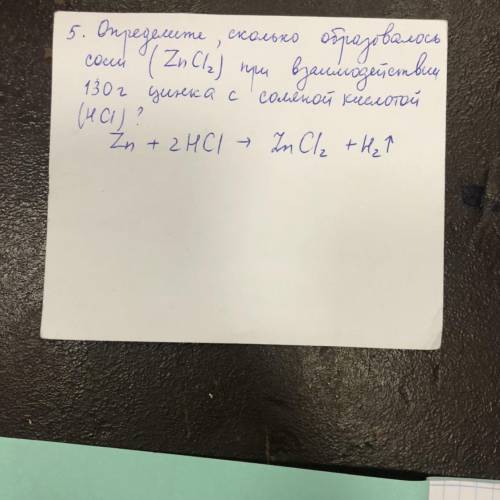 5. Определите, сколько образовалось
соли (ZnCl₂) при взаимодействии
130 г цинка с соляной кислотой
(HCl)?
Zn + 2HCl → ZnCl₂ + H₂↑